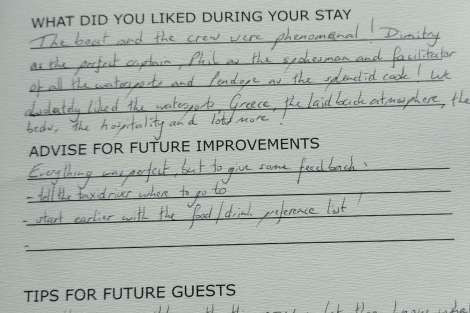 WHAT DID YOU LIKED DURING YOUR STAY
The boat and the crew were phenomenal! Dimitry
as the perfect captain, Phil as the spokesman and facilitator
of all the watersports and Penelope as the splendid cook! We
absolutely liked the watersports, Greece, the laid back atmosphere, the
beds, the hospitality and lots more!
ADVISE FOR FUTURE IMPROVEMENTS
Everything was perfect, but to give some feedback:
- tell the taxidriver where to go to
- start earlier with the food/drink preference list!
-
TIPS FOR FUTURE GUESTS